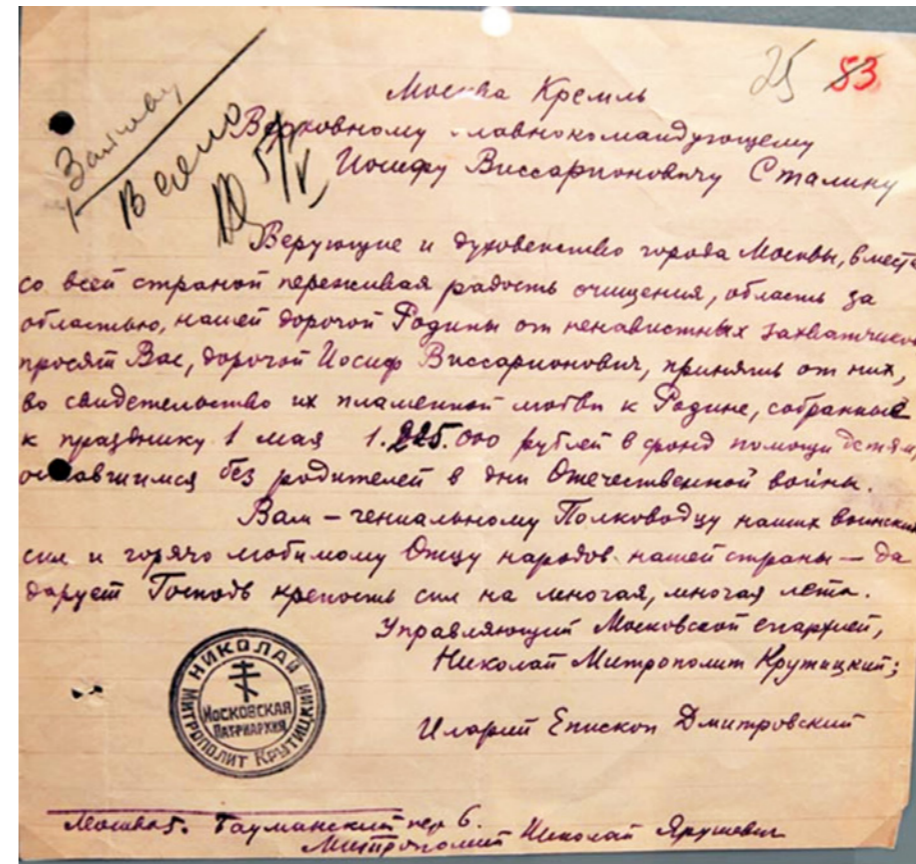 25 83
Москва Кремль
Верховному Главнокомандующему
Иосифу Виссарионовичу Сталину
Верующие и духовенство города Москвы, вместе
со всей страной переживая радость очищения, область за
областью, нашей дорогой Родины от ненавистных захватчиков
просят Вас, дорогой Иосиф Виссарионович, принять от них,
во свидетельство их пламенной любви к Родине, собранные
к празднику 1 мая 1.225.000 рублей в фонд помощи детям,
оставшимся без родителей в дни Отечественной войны.
Вам – гениальному Полководцу наших воинских
сил и горячо любимому Отцу народов нашей страны – да
дарует Господь крепость сил на многая, многая лета.
Управляющий Московской епархией,
Николай Митрополит Крутицкий;
Иларий Епископ Дмитровский
НИКОЛАЙ
МИТРОПОЛИТ КРУТИЦКИЙ
МОСКОВСКАЯ
ПАТРИАРХИЯ
Москва 5. Бауманский пер 6.
Митрополит Николай Ярушевич